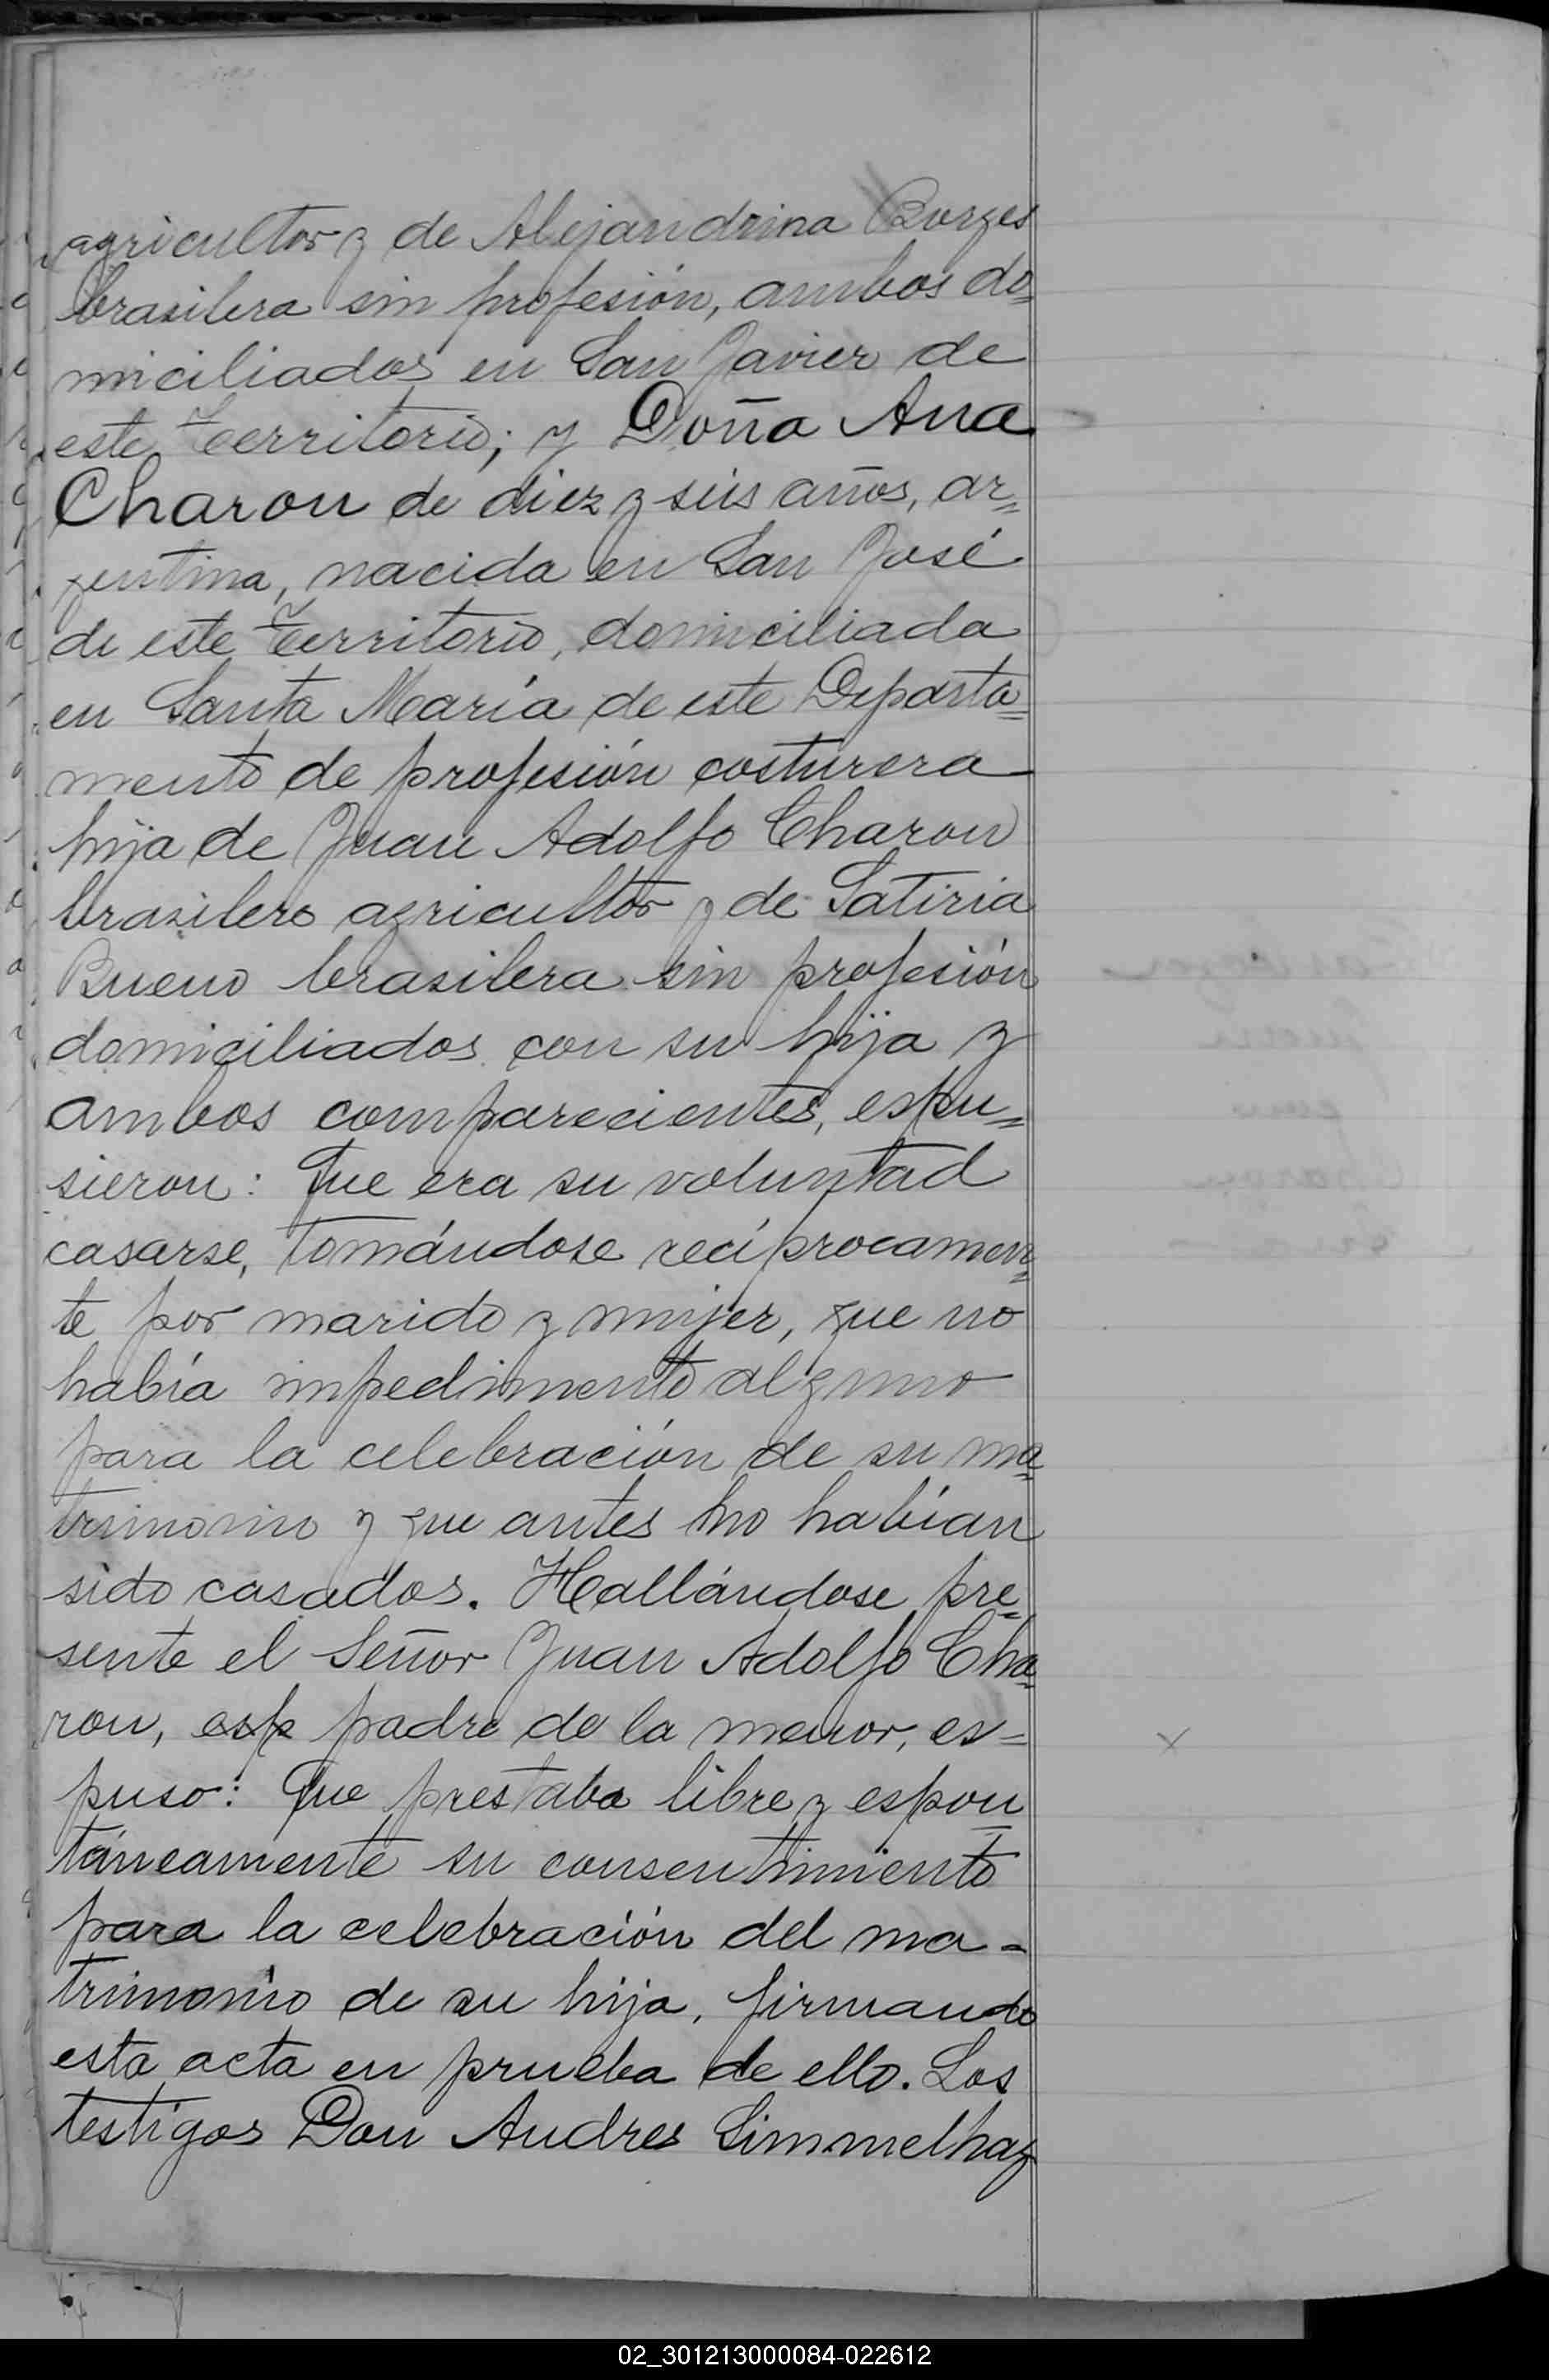 agricultor y de Alejandrina Borges
brasilera sin profesión, ambos do=
miciliados en San Javier de
este Territorio; y Doña Ana
Charon de diez y seis años, ar=
gentina, nacida en San José
de este Territorio, domiciliada
en Santa María de este Departa=
mento de profesión costurera
hija de Juan Adolfo Charon
brasilero agricultor y de Satiria
Bueno brasilera sin profesión
domiciliados con su hija y
ambos comparecientes, espu=
sieron: Que era su voluntad
casarse, tomándose recíprocamen=
te por marido y mujer, que no
había impedimento alguno
para la celebración de su ma=
trimonio y que antes no habían
sido casados. Hallándose pre=
sente el Señor Juan Adolfo Cha=
ron, esp padre de la menor, es=
puso: Que prestaba libre y espon
táneamente su consentimiento
para la celebración del ma=
trimonio de su hija, firmando
esta acta en prueba de ello. Los
testigos Don Andres Simmelhag
02_301213000084-022612